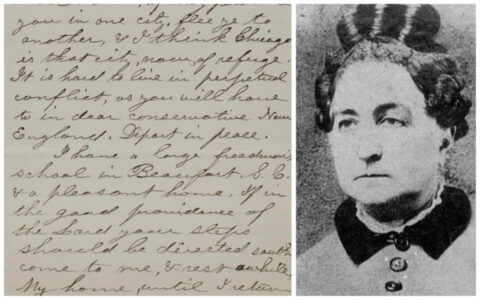 you in one city, flee ye to
another, & I think Chicago
is that city, now, of refuge.
It is hard to live in perpetual
conflict, as you will have
to in dear conservative New
England. Depart in peace.
I have a large freedmen's
school in Beaufort S. C.
& a pleasant home. If in
the good providence of
the Lord your steps
should be directed south
come to me, & rest awhile.
My home, until I return